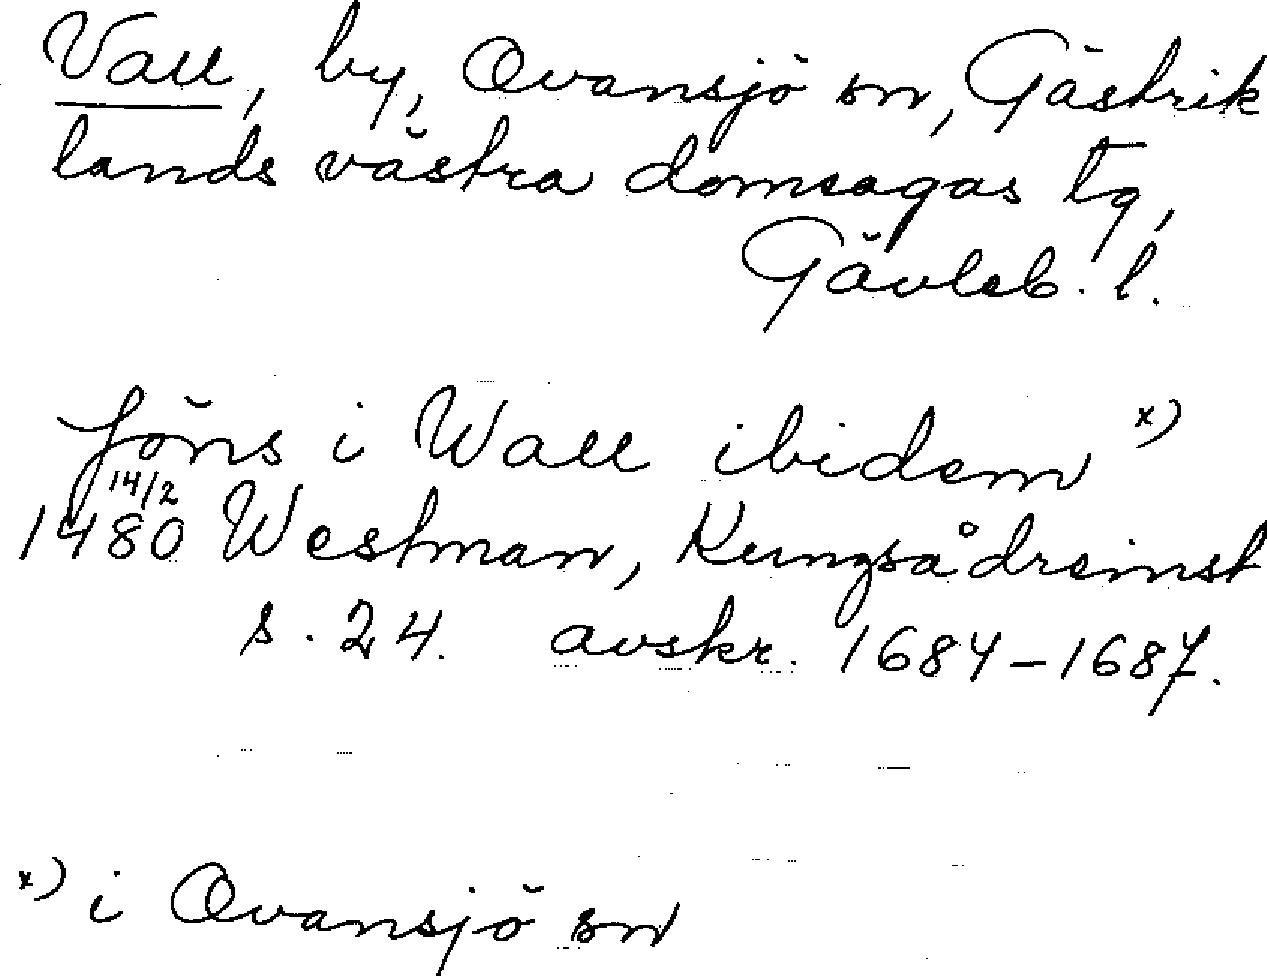 Vall, by, Ovansjö sn, Gästrik
lands västra domsagas tg,
Gävleb. l.
Jöns i Wall ibidem x)
14/2
1480 Westman, Kungsådreinst
s. 24. avskr. 1684-1687.
x) i Ovansjö sn